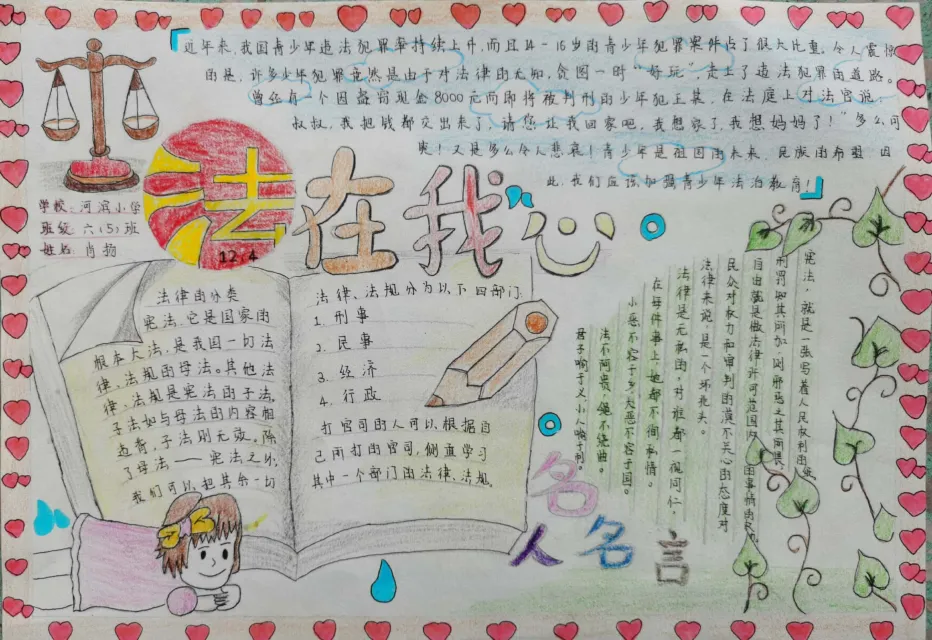 近年来,我国青少年违法犯罪率持续上升,而且14-16岁的青少年犯罪案件占了很大比重。令人震惊
的是,许多少年犯罪竟然是由于对法律的无知,贪图一时“好玩”走上了违法犯罪的道路。
曾经有一个因盗窃现金8000元而即将被判刑的少年犯王某,在法庭上对法官说:
叔叔,我把钱都交出来了,请您让我回家吧,我想家了,我想妈妈了!”多么可
笑!又是多么令人悲哀!青少年是祖国的未来,民族的希望,因
此,我们应该加强青少年法治教育!
学校:河滨小学
班级:六(5)班
姓名:肖扬
法在我心
12.4
法律的分类
宪法,它是国家的
根本大法,是我国一切法
律、法规的母法。其他法
律、法规是宪法的子法,
子法如与母法的内容相
违背,子法则无效。除
了母法——宪法之外,
我们可以把其余一切
法律、法规分为以下四部门:
1. 刑事
2. 民事
3. 经济
4. 行政
打官司的人可以根据自
己所打的官司,侧重学习
其中一个部门的法律、法规。
宪法,就是一张写着人民权利的纸。
刑罚如其所加,则邪恶之其所畏
自由就是做法律许可范围内的事情的权
民众对权力和审判的漠不关心的态度对
法律来说,是一个坏兆头。
法律是无私的,对谁都一视同仁。
在每件事上,她都不徇私情。
小恶不容于乡,大恶不容于国。
法不阿贵,绳不绕曲。
君子喻于义,小人喻于利。
名人名言